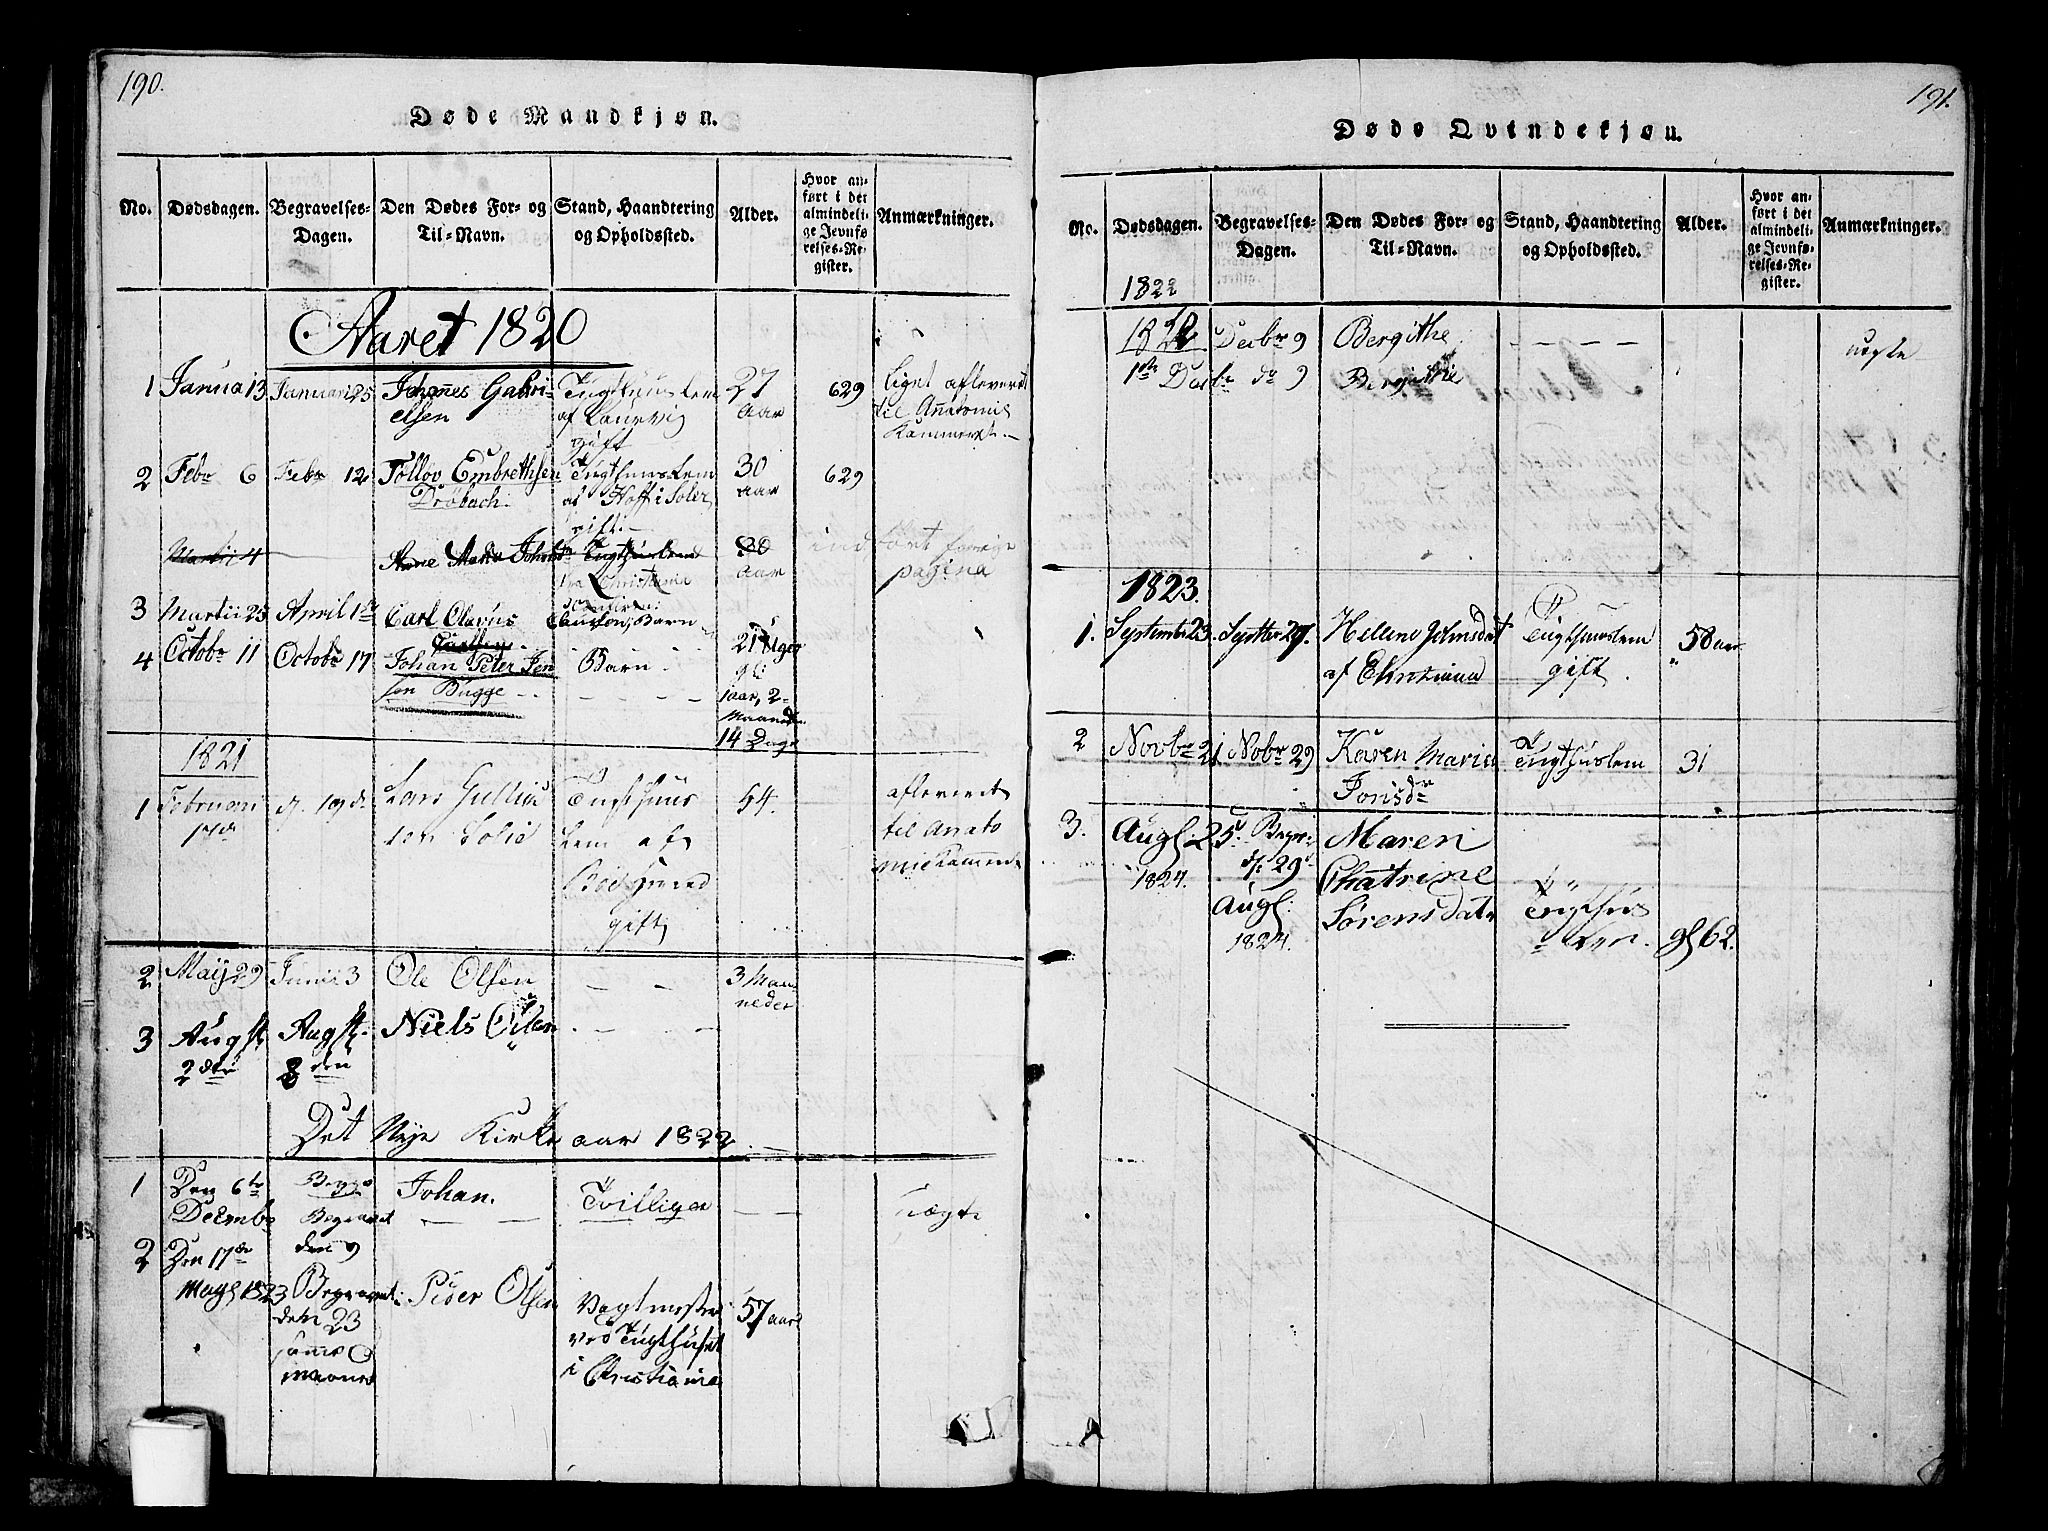 190.
Døde Mandkjøn.
No.
Dødsdagen.
Begravelses-
Dagen.
Den Dødes For- og
Til-Navn.
Stand, Haandtering
og Opholdssted.
Alder.
Hvor an-
ført i det
almindeli-
ge Jevnfø-
relses-Re-
gister.
Anmærkninger.
Aaret 1820
1 Janua 13 Januari 25 Johanes Gabri-
elsen
Tugthuuslem
af Laurvig
gift
27
Aar
629
Liget afleveret
til Anatomie
Kammeret.-
2 Febr 6 Febr 12 Tollov Embrethsen
Drøbach.
Tugthuuslem
af Hoff i Soler
gift.-
30
aar
629
Martii 4
Anne Maria
Tugthuuslem
fra Christiania
30
aar
indført forrige
pagina
3 Martii 25 April 1ste Carl Olavus
Barn
21 Uger
gl:
4 Octobr 11 Octobr 17 Johan Peter Jen
sen Bugge
Barn
1 aar, 2
Maaneder
14 Dage
1821
1 Februari
17de
d. 19de
Lars Gulliks
sen Solie
Tugthuus
Lem af
gift
54.
afleveret
til Anato
mickammeret
2 Maij 29 Junii 3 Ole Olsen
3 Maa
neder
3 Augst.
2den
Augst.
8 den
Niels Olsen
Det Nye Kirke aar 1822
1 Den 6te
Decmbr
Begge
Begravet
den 9
Johan.
Tvillinger
uægte
2 Den 17de
Maii 1823
Begravet
den 23
samme
maaned
Peder Olsen
Vagtmester
ved Tugthuset
i Christiania
57 aar
191.
Døde Qvindekjøn.
No.
Dødsdagen.
Begravelses-
Dagen.
Den Dødes For- og
Til-Navn.
Stand, Haandtering
og Opholdssted.
Alder.
Hvor an-
ført i det
almindeli-
ge Jevnfø-
relses-Re-
gister.
Anmærkninger.
1822
1822 Decbr 9 Bergithe
uægte
Decbr do 9
1823.
1. Septembr 23. Septbr 27. Hellene Johnsdat
af Christiania
Tugthuuslem
gift.
58 aar
2 Novbr 21 Nobr 29 Karen Maria
Jonsdr
Tugthuslem
31
3. Augs: 25
1824.
Begr:
d: 29
Augs:
1824.
Maren
Chatrine
Sørensdatr
Tugthus
Lem.
gl 62.